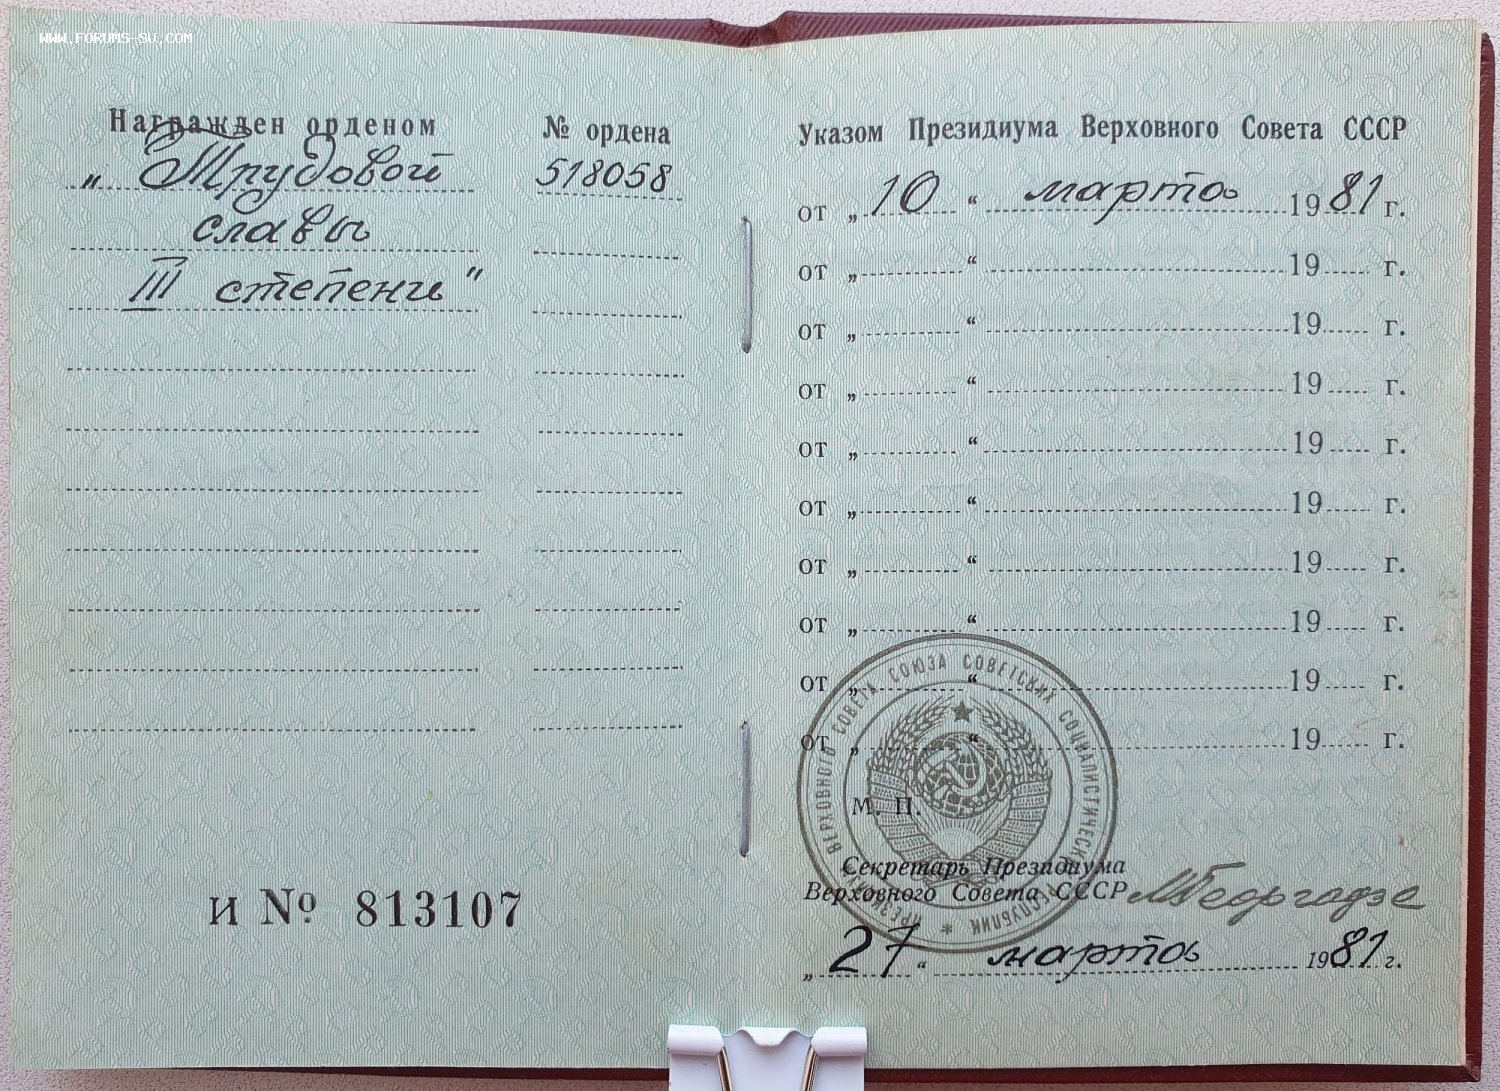 WWW.FORUMS-SU.COM
Награжден орденом
„Трудовой
славы
III степени"
№ ордена
518058
И № 813107
Указом Президиума Верховного Совета СССР
от „10“ марта 1981 г.
от „ “ 19 г.
от „ “ 19 г.
от „ “ 19 г.
от „ “ 19 г.
от „ “ 19 г.
от „ “ 19 г.
от „ “ 19 г.
от „ “ 19 г.
от „ “ 19 г.
ПРЕЗИДИУМ ВЕРХОВНОГО СОВЕТА СОЮЗА СОВЕТСКИХ СОЦИАЛИСТИЧЕСКИХ РЕСПУБЛИК *
М. П.
Секретарь Президиума
Верховного Совета СССР МГеоргадзе
„27“ марта 1981 г.